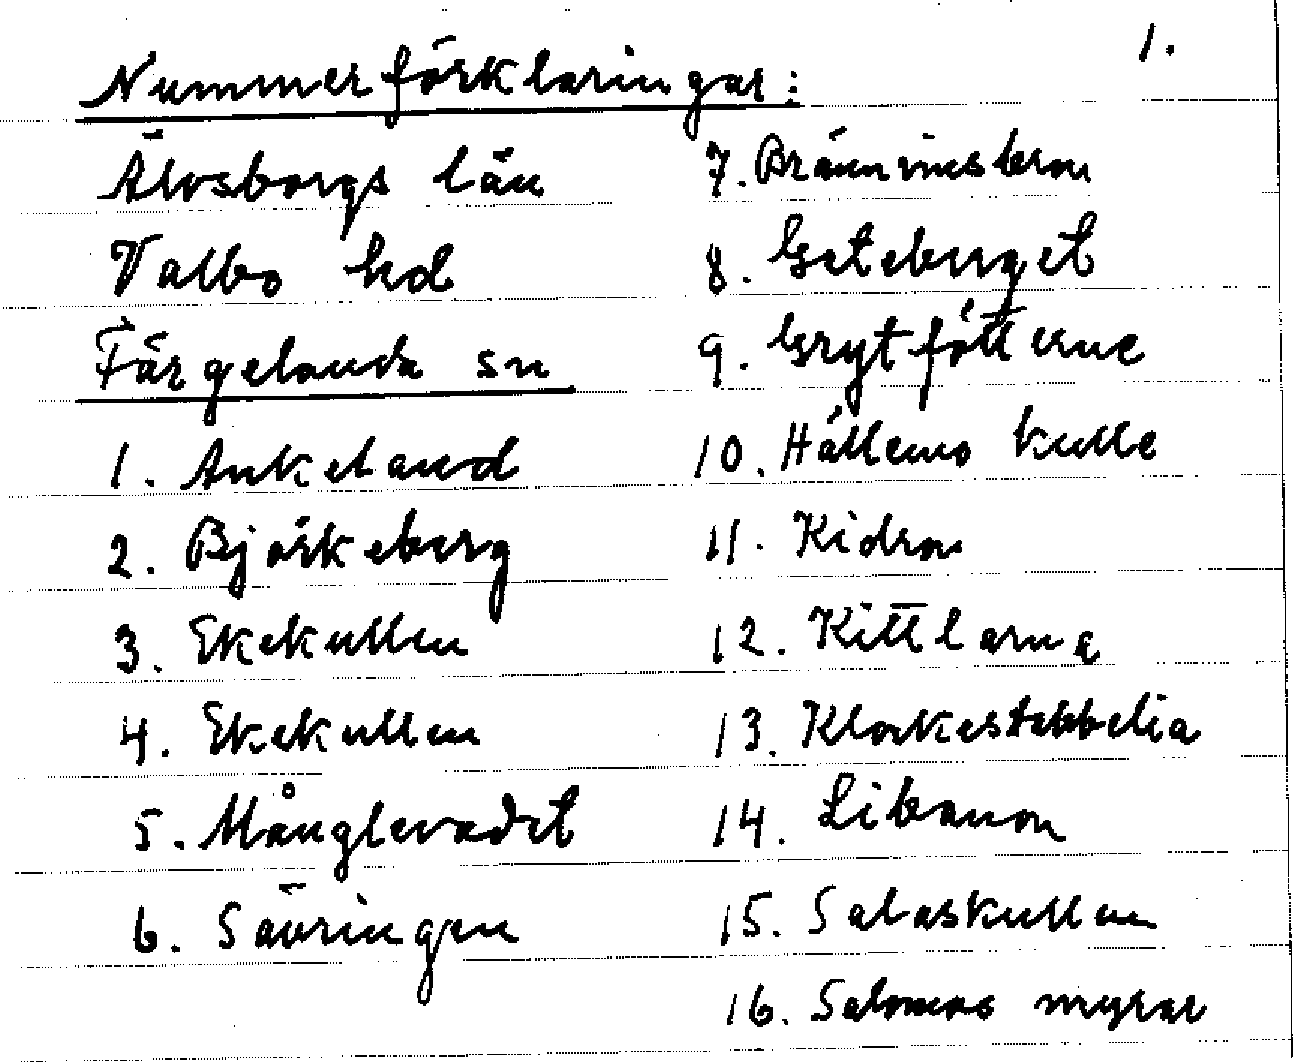 1.
Nummerförklaringar:
Älvsborgs län
Valbo hd
Färgelanda sn
1. Ankeland
2. Björkeberg
3. Ekekullen
4. Ekekullen
5. Månglevadet
6. Sävringen
7. Brännvinsbron
8. Geteberget
9. Grytfötterne
10. Hällemo kulle
11. Kidron
12. Kittlarna
13. Klockestabbelia
14. Libanon
15. Salaskullen
16. Salomos myrar